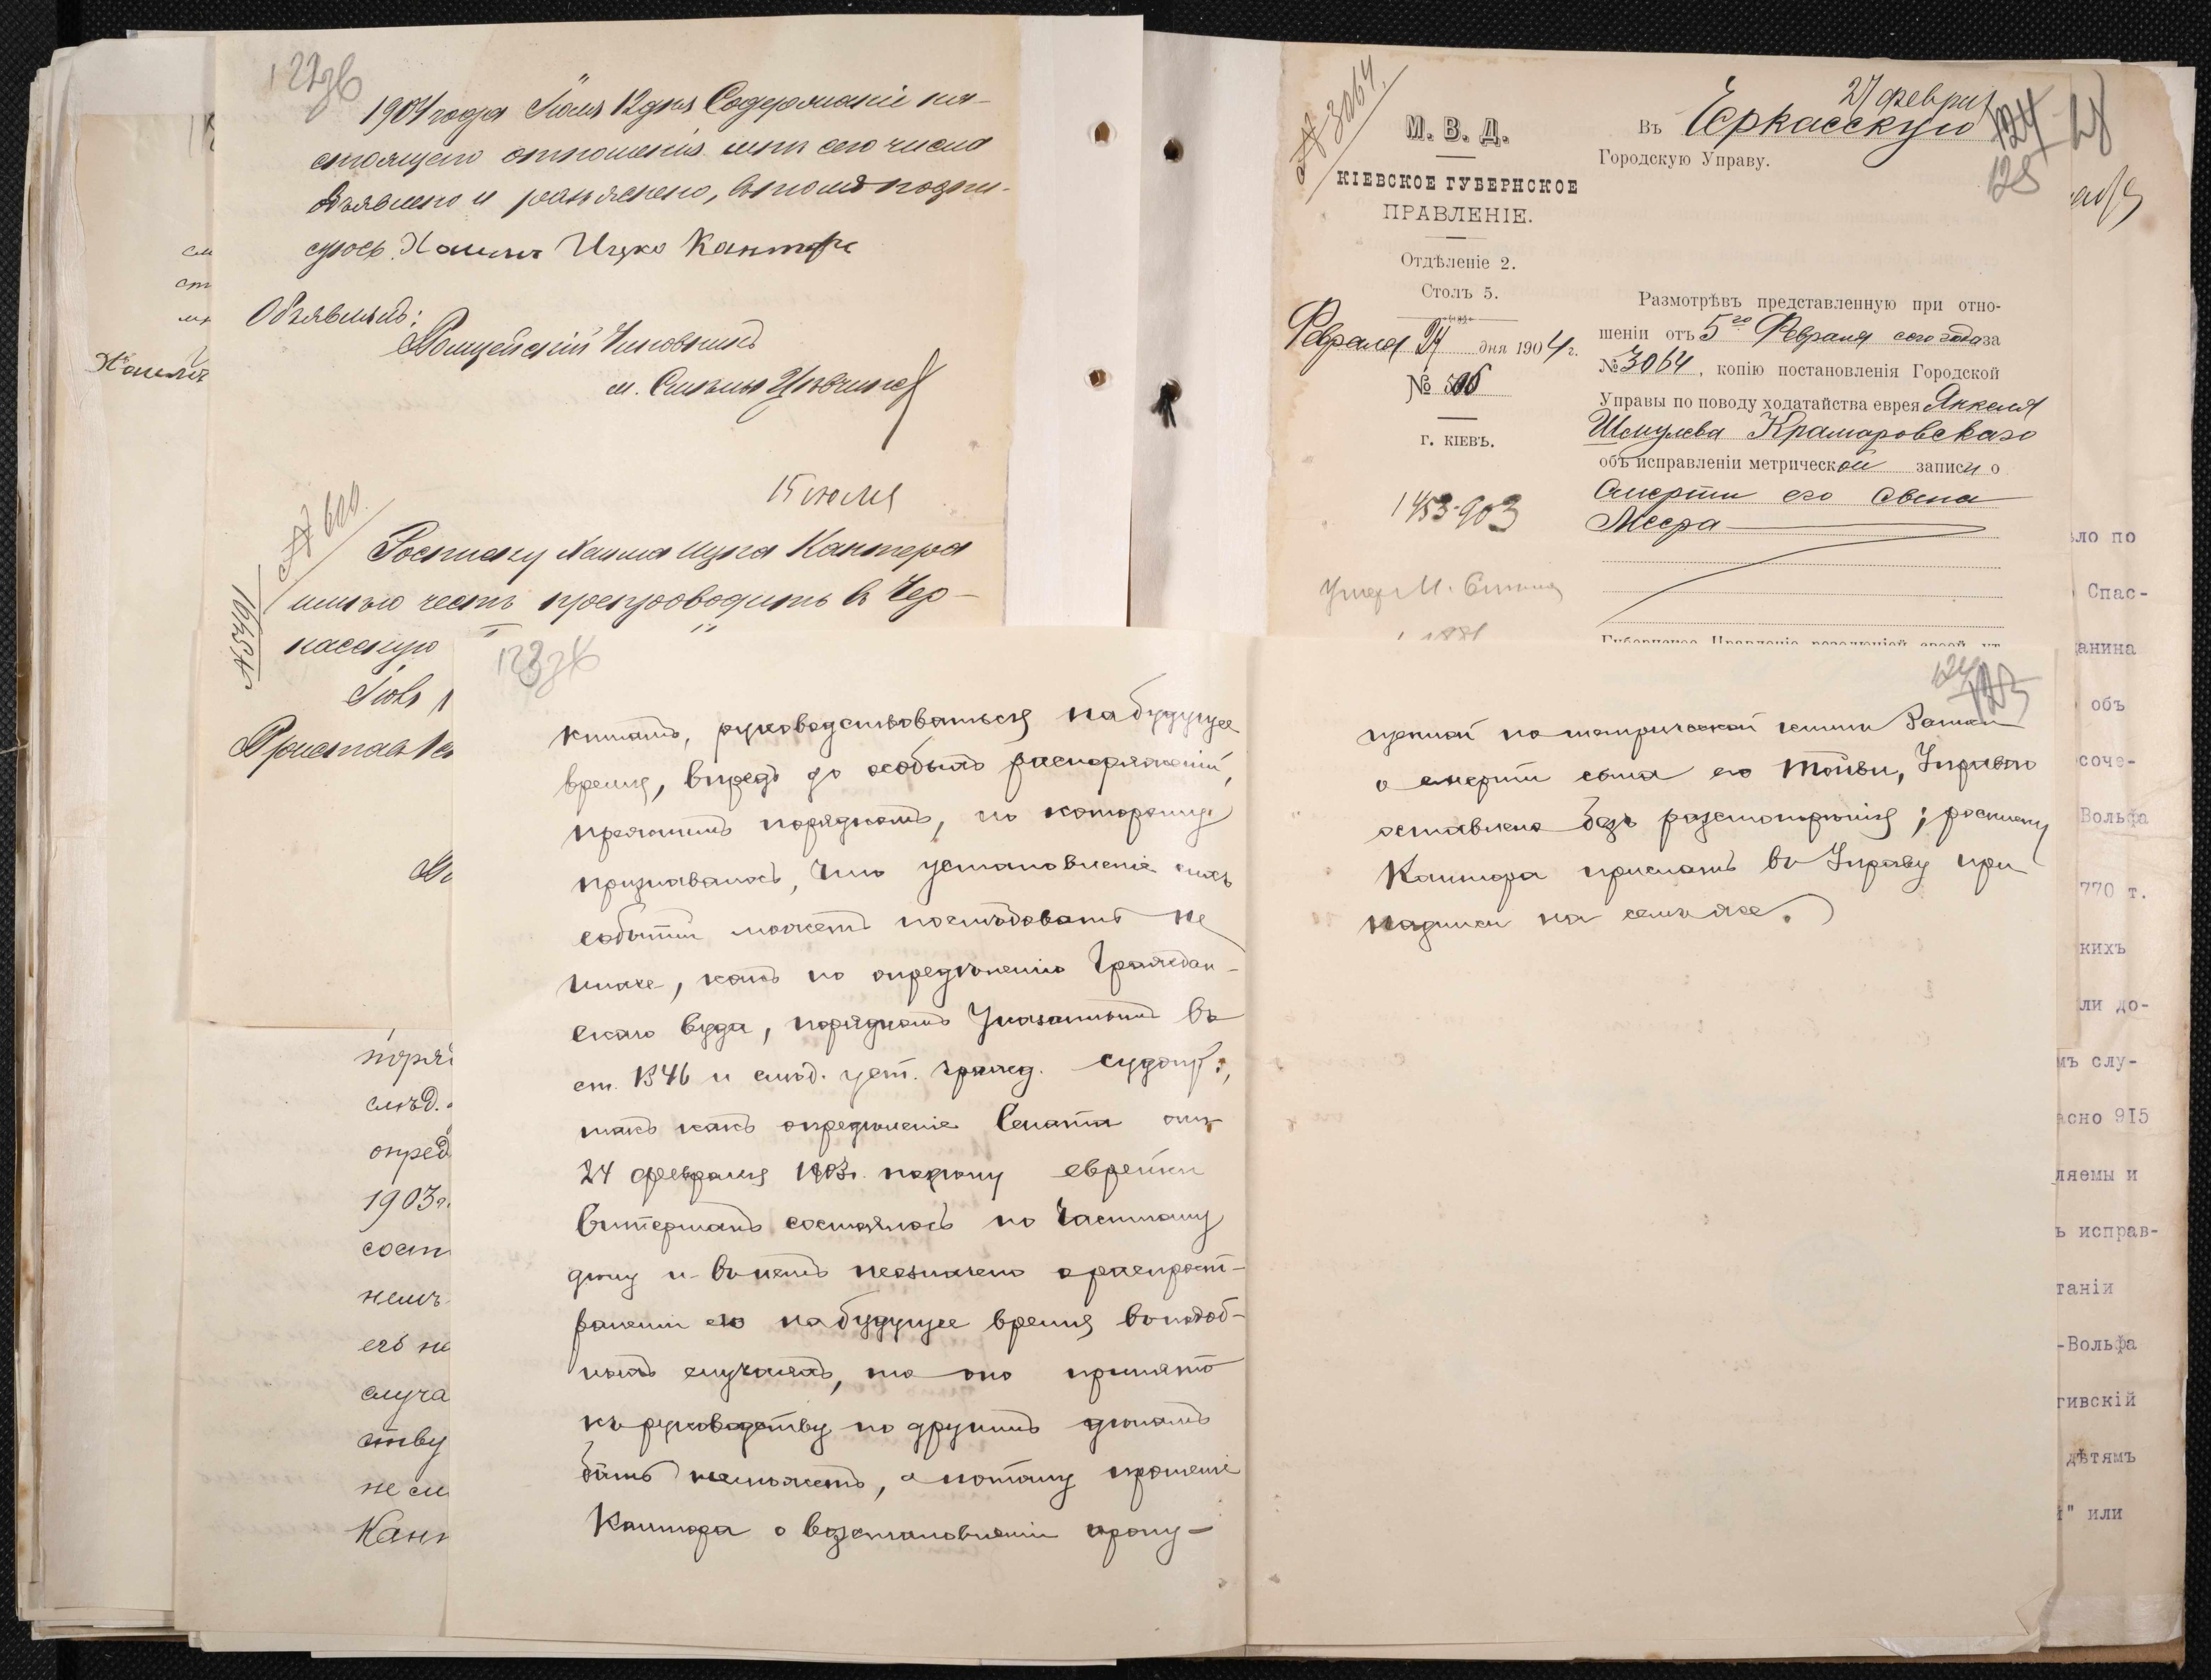 122об
1904 года Іюля 12 дня Содержаніе на-
стоящего отношенія мнѣ сего числа
объявлено и разъяснено, въ томъ подпи-
суюсь. Хаимъ Ицко Канторъ
Объявилъ:
Полицейскій Чиновникъ
м. Смѣлы
15 июля
№ 600.
№ 5491
Росписку Хаима Ицка Кантера
имѣю честь препроводить въ Чер-
касскую
Приставъ
см
ст
Хаимъ
поря
слѣд.
опред
1903 г.
сост
немъ
его не
случа
ству
не см
Кан
123об
кишамъ, руководствоваться на будущее
время, впредь до особыхъ распоряженій,
прежнимъ порядкомъ, по которому
признавалось, что установленіе сихъ
событій можетъ послѣдовать не
иначе, какъ по опредѣленію Граждан-
скаго Суда, порядкомъ указаннымъ въ
ст. 1346 и слѣд. уст. гражд. судопр.,
такъ какъ опредѣленіе Сената отъ
24 февраля 1903 г. по дѣлу еврейки
состоялось по частному
дѣлу и въ немъ не означено о распрост-
раненіи его на будущее время въ подоб-
ныхъ случаяхъ, то оно принято
къ руководству по другимъ дѣламъ
быть не можетъ, а потому прошеніе
Кантора о возстановленіи пропу-
124
123
щенной по метрической книгѣ записи
о смерти сына его Тойви, Управою
оставлено безъ разсмотрѣнія; росписку
Кантора прислать въ Управу при
надписи на семъ же.
№ 3064.
М. В. Д.
КІЕВСКОЕ ГУБЕРНСКОЕ
ПРАВЛЕНІЕ.
Отдѣленіе 2.
Столъ 5.
Февраля 24 дня 1904 г.
№ 506
г. КІЕВЪ.
1453-903
Умер М. Смела
1881
27 феврал
124
125
Въ Черкасскую
Городскую Управу.
Размотрѣвъ представленную при отно-
шеніи отъ 5го Февраля сего года за
№ 3064, копію постановленія Городской
Управы по поводу ходатайства еврея Янкеля
Шмулева Крамаровскаго
объ исправленіи метрической записи о
смерти его сына
Меера
ло по
Спас-
анина
объ
соче-
Вольфа
770 т.
кихъ
ли до-
мъ слу-
асно 915
ляемы и
ъ исправ-
таніи
-Вольфа
гивскій
дѣтямъ
" или